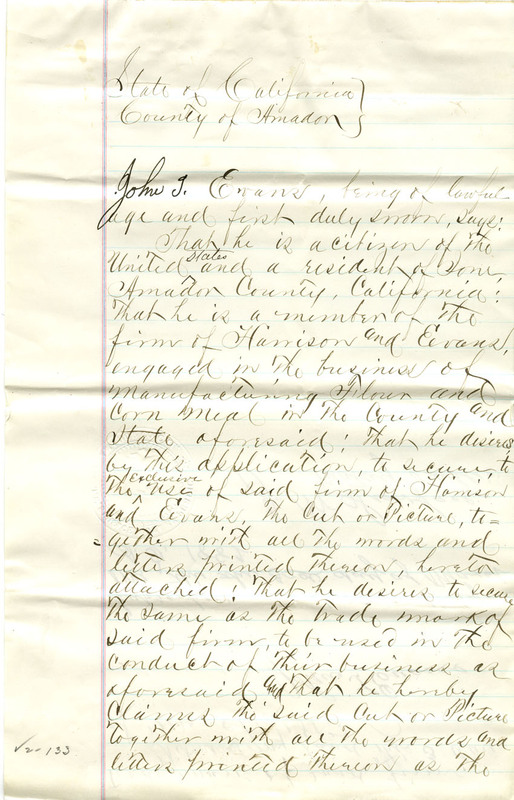 State of California }
County of Amador }
John T. Evans, being of lawful
age and first duly sworn, says:
That he is a citizen of the
United States and a resident of Ione
Amador County, California:
That he is a member of the
firm of Harrison and Evans,
engaged in the business of
manufacturing Flour and
Corn meal in the County and
State aforesaid: That he desires
by this application, to secure, to
the exclusive use of said firm of Harrison
and Evans, the Cut or Picture, to=
=gether with all the words and
letters printed thereon, hereto
attached: That he desires to secure
the same as the Trade mark of
said firm, to be used in the
conduct of their business as
aforesaid and That he hereby
Claims the said Cut or Picture
together with all the words and
letters printed thereon as the
133